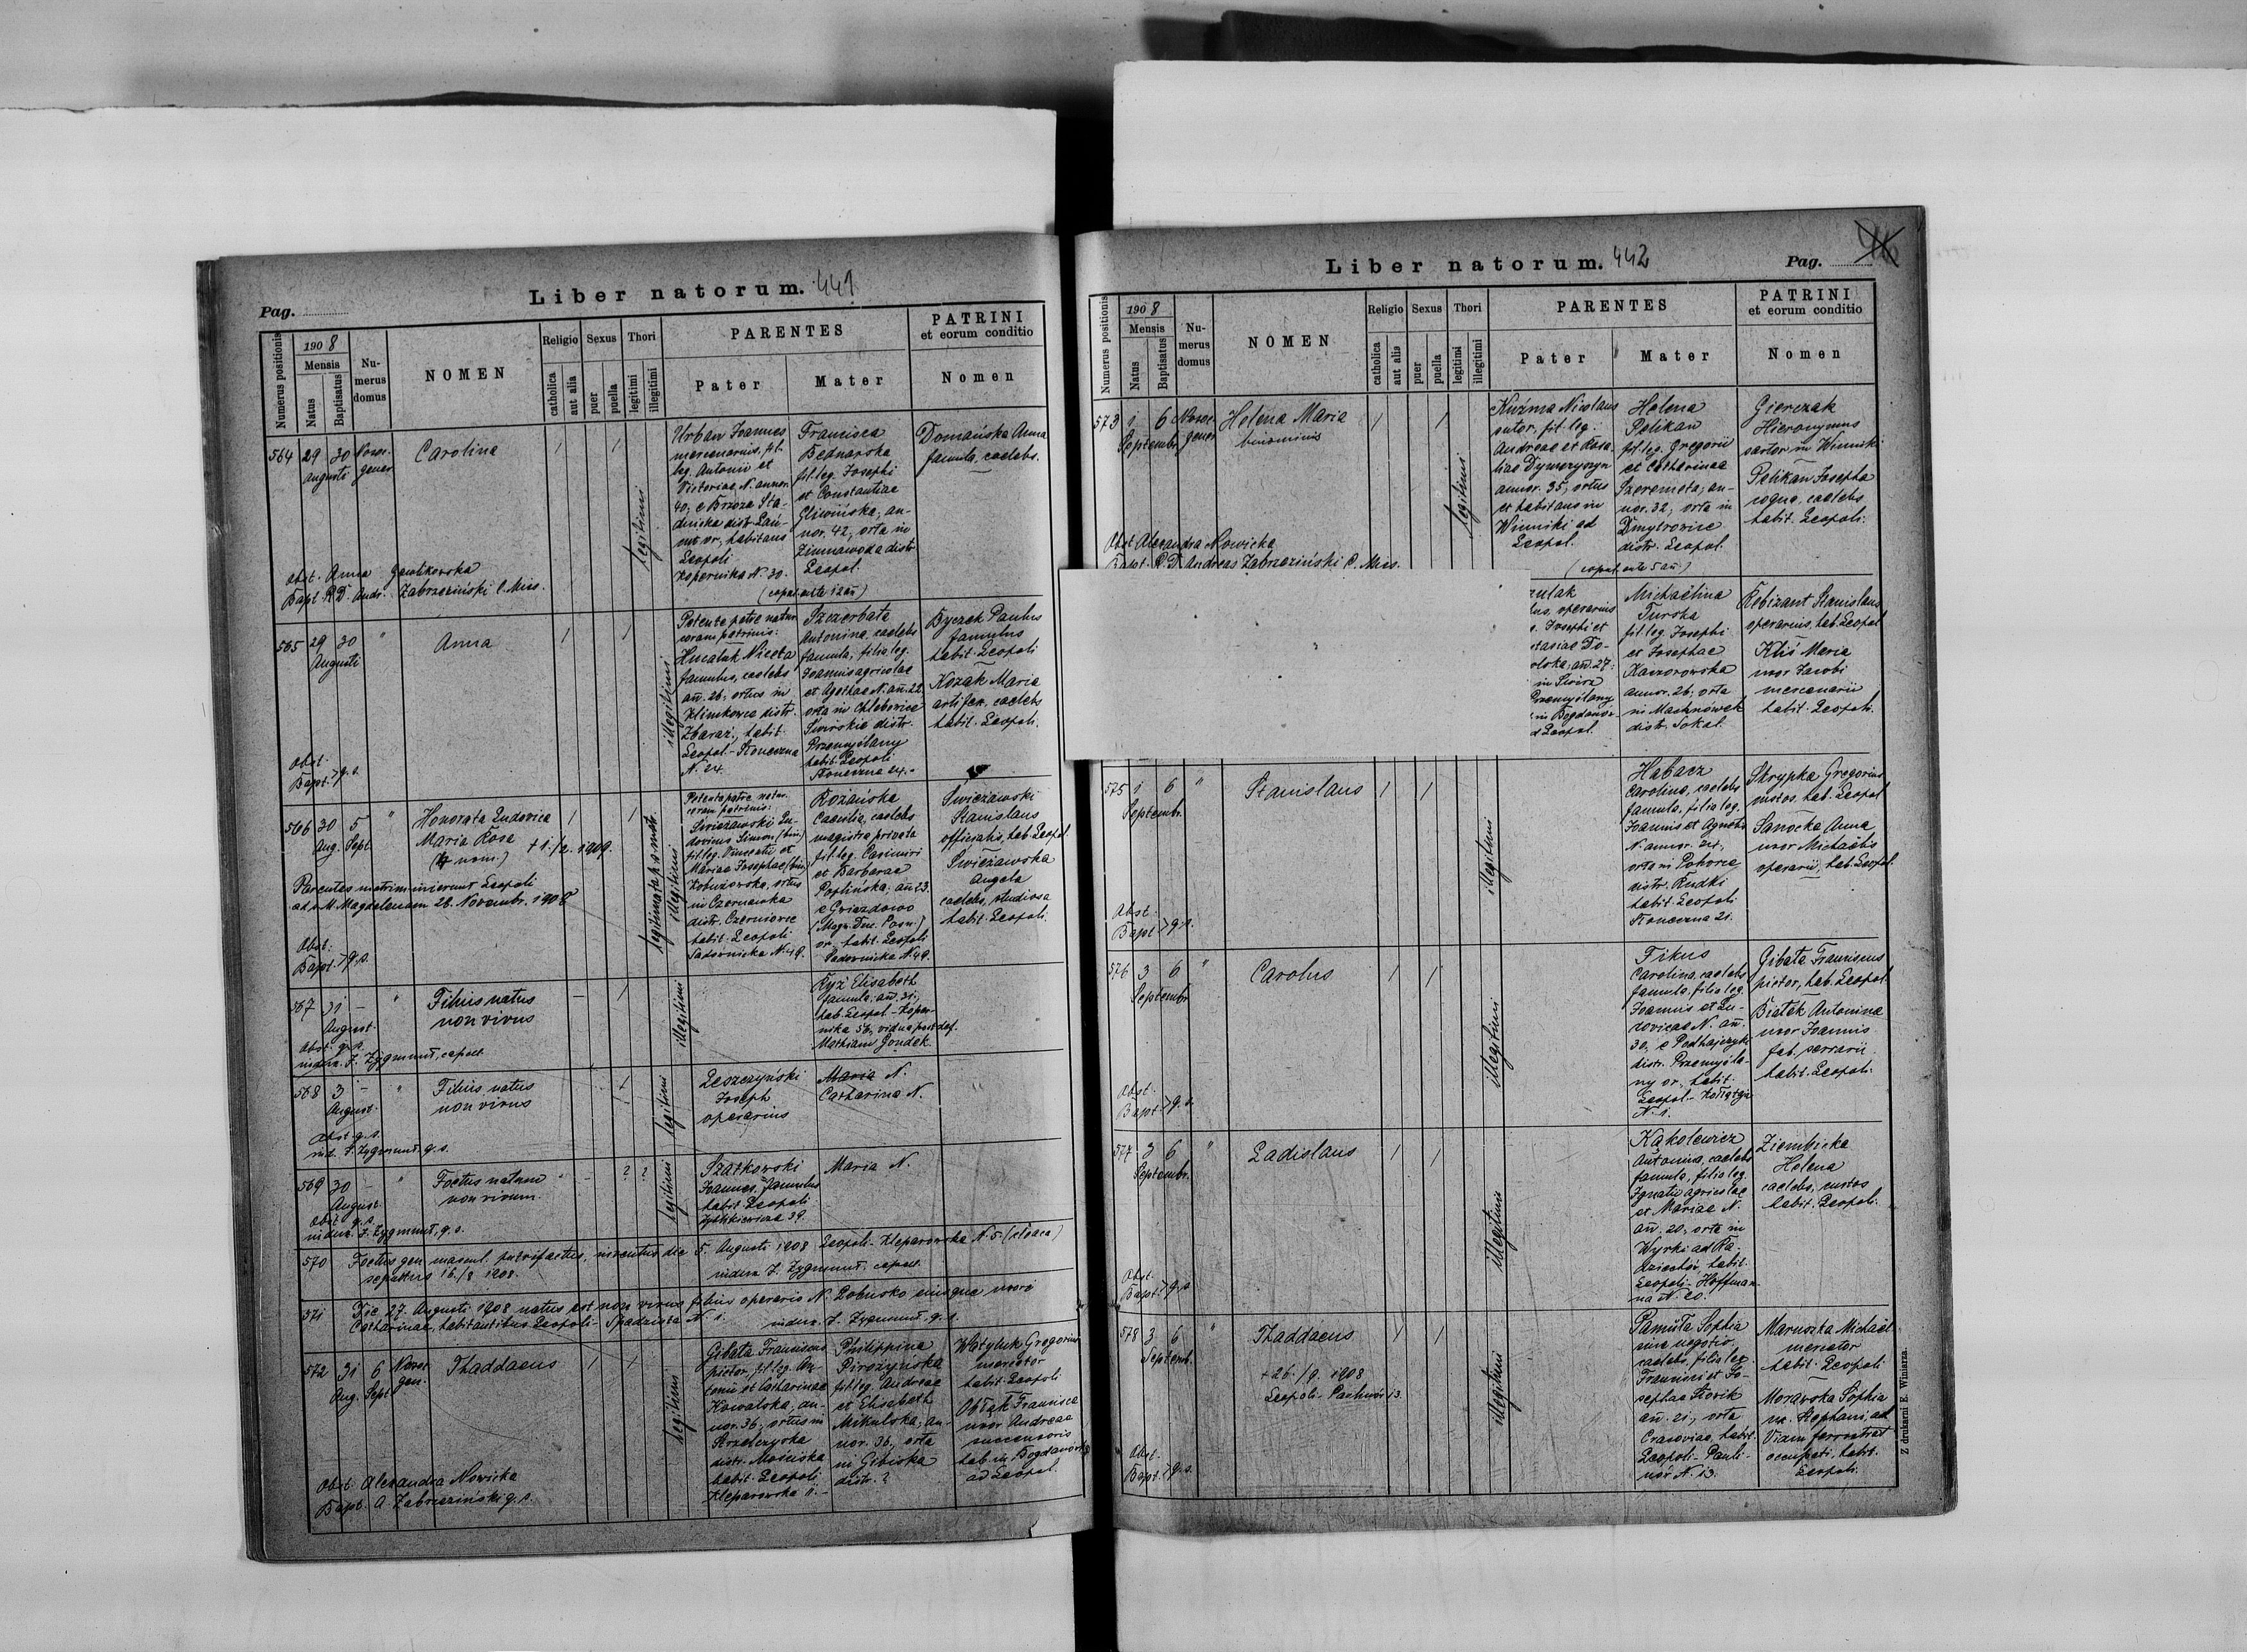 Pag.
Liber natorum. 441
Numerus positionis
1908
Mensis
Natus
Baptisatus
Numerus domus
NOMEN
Religio
catholica
aut alia
Sexus
puer
puella
Thori
legitimi
illegitimi
PARENTES
Pater
Mater
PATRINI
et eorum conditio
Nomen
564
29
30
Augusti
Carolina
legitimi
Urban Joannes
mercenarius, fil.
leg. Antonii et
Victoriae N. annor.
40, e Brzoza Sta-
dnicka distr. Łań-
cut or., habitans
Leopoli
Kopernika N. 30.
Francisca
Bednarska
fil. leg. Josephi
et Constantiae
Gliwińska, an-
nor. 42, orta in
Zimnawoda distr.
Leopol.
Domańska Anna
famula, caelebs.
Obst. Anna Gawlikowska
Bapt. R.D. Andr. Zabrzeziński C. Miss.
565
29
30
Augusti
"
Anna
illegitimi
Petente patre natur.
coram patrinis:
Hucaluk Niceta
famulus, caelebs
ań. 26, ortus in
Klimkowce distr.
Zbaraż, habit.
Leopol. - Słoneczna
N. 24.
Szczerbata
Antonina, caelebs
famula, filia leg.
Joannis agricolae
et Agathae N. ań. 22
orta in Chlebowice
Świrskie distr.
Przemyślany
habit. Leopoli
Słoneczna 24.
Byczek Paulus
famulus
habit. Leopoli
Kozak Maria
artifex, caelebs
habit. Leopoli.
Obst.
Bapt. > q. s.
566
30
5
Aug. Sept.
"
Honorata Ludovica
Maria Rosa
(4 nom.) + 1./2. 1909.
Parentes matrim. inierunt Leopoli
ad s. M. Magdalenam 28. Novembr. 1908
illegitimi
Petente patre natur.
coram patrinis:
Swieżawski Lu-
dovicus Simon (bin.)
fil. leg. Vincentii et
Mariae Josephae (bin.)
Kobuzowska, ortus
in Czernawka
distr. Czerniowce
habit. Leopoli
Sadownicka N. 49.
Rożańska
Caecilia, caelebs
magistra privata
fil. leg. Casimiri
et Barbarae
Poplińska, ań. 23.
e Gwiazdowo
(Magn. Duc. Posn.)
or. habit. Leopoli
Sadownicka N. 49.
Swieżawski
Stanislaus
officialis, hab. Leopol.
Swieżawska
Angela
caelebs, studiosa
habit. Leopoli.
Obst.
Bapt. > q. s.
567
31
-
August.
"
Filius natus
non vivus
illegitimi
Ryż Elisabeth
famula, ań. 31,
hab. Leopol. - Koper-
nika 56, vidua post def.
Mathiam Gondek
Obst. q. s.
inderz. J. Zygmunt, capell.
568
3
-
August.
"
Filius natus
non vivus
legitimi
Leszczyński
Joseph
operarius
Maria N.
Catharina N.
Obst. q. s.
ind. J. Zygmunt q. s.
569
30
-
August.
"
Foetus natum
non vivum
? ?
legitimi
Szatkowski
Joannes, famulus
habit. Leopoli
39.
Maria N.
Obst. q. s.
inderz. J. Zygmunt, q. s.
570
Foetus gen. mascul. putrefactus, inventus die 5. Augusti 1908 Leopoli - Kleparowska N. 5 (cloaca)
sepultus 16./8. 1908.
inderz. J. Zygmunt, capell.
571
Die 27. Augusti 1908 natus est non vivus filius operario N. Dobusko eiusque uxori
Catharinae, habitantibus Leopoli - Spadzista N. 1.
inderz. J. Zygmunt, q. s.
572
31
6
Aug. Sept.
Thaddaeus
legitimi
Gibała Franciscus
pictor, fil. leg. An-
tonii et Catharinae
Kowalska, an-
nor. 36, ortus in
Strzelczyska
distr. Mościska
habit. Leopoli
Kleparowska 11.
Philippina
Pirożyńska
fil. leg. Andreae
et Elisabeth
Mikulska, an-
nor. 36, orta
in Gibiska
distr. ?
Watyluk Gregorius
mercator
habit. Leopoli
Obłąk Francisca
uxor Andreae
successoris
hab. in Bogdanówka
ad Leopol.
Obst. Alexandra Nowicka
Bapt. A. Zabrzeziński q. s.
Liber natorum. 442
Pag.
Numerus positionis
1908
Mensis
Natus
Baptisatus
Numerus domus
NOMEN
Religio
catholica
aut alia
Sexus
puer
puella
Thori
legitimi
illegitimi
PARENTES
Pater
Mater
PATRINI
et eorum conditio
Nomen
573
1
6
Septembr.
Helena Maria
binominis
legitimi
Kuźma Nicolaus
sutor, fil. leg.
Andreae et Rosa-
liae Dymezyszyn
annor. 35, ortus
et habitans in
Winniki ad
Leopol.
Helena
Pelikan
fil. leg. Gregorii
et Catharinae
Szeremeta, an-
nor. 32, orta in
Dmytrowice
distr. Leopol.
Gierczak
Hieronymus
sartor in Winniki
Pelikan Josepha
coqua, caelebs
habit. Leopoli.
Obst. Alexandra Nowicka
Bapt. R.D. Andreas Zabrzeziński C. Miss.
operarius
Josephi et
ań. 27;
Przemyślany
in Bogdanów-
Leopol.
Michaëlina
Turska
fil. leg. Josephi
et Josephae
Kaczorowska
annor. 26, orta
in Machnówek
distr. Sokal.
Rebizant Stanislaus
operarius, hab. Leopol.
Kliś Maria
uxor Jacobi
mercenarii
habit. Leopoli.
575
1
6
Septembr.
"
Stanislaus
illegitimi
Habacz
Carolina, caelebs
famula, filia leg.
Joannis et Agnetis
N. annor. 24,
orta in Pohorce
distr. Rudki
habit. Leopoli
Słoneczna 21.
Skrypka Gregorius
custos, hab. Leopol.
Sanocka Anna
uxor Michaëlis
operarii, hab. Leopol.
Obst.
Bapt. > q. s.
576
3
6
Septembr.
"
Carolus
illegitimi
Fikus
Carolina, caelebs
famula, filia leg.
Joannis et Lu-
dovicae N. ań.
30, e Podhajczyk
distr. Przemyśla-
ny or., habit.
Leopol. - Kołłątaja
N. 1.
Gibała Franciscus
pictor, hab. Leopol.
Białek Antonina
uxor Joannis
fab. ferrarii
habit. Leopoli.
Obst.
Bapt. > q. s.
577
3
6
Septembr.
"
Ladislaus
illegitimi
Kąkolewicz
Antonina, caelebs
famula, filia leg.
Ignatii agricolae
et Mariae N.
ań. 20, orta in
Wyrki ad Ra-
dziechów, habit.
Leopoli - Hoffman-
na N. 20.
Ziembicka
Helena
caelebs, custos
habit. Leopoli.
Obst.
Bapt. > q. s.
578
3
6
Septemb.
"
Thaddaeus
+ 26./9. 1908
Leopoli - Paulinów 13.
illegitimi
Pamuła Sophia
sine negotio
caelebs, filia leg.
Francisci et Jo-
sephae Słowik
ań. 21, orta
Cracoviae, habit.
Leopoli - Pauli-
nów N. 13.
Maruszka Michaël
mercator
habit. Leopoli
Morawska Sophia
ux. Stephani, ad
Viam ferratam
occupati, habit.
Leopoli.
Obst.
Bapt. > q. s.
Z drukarni E. Winiarza.